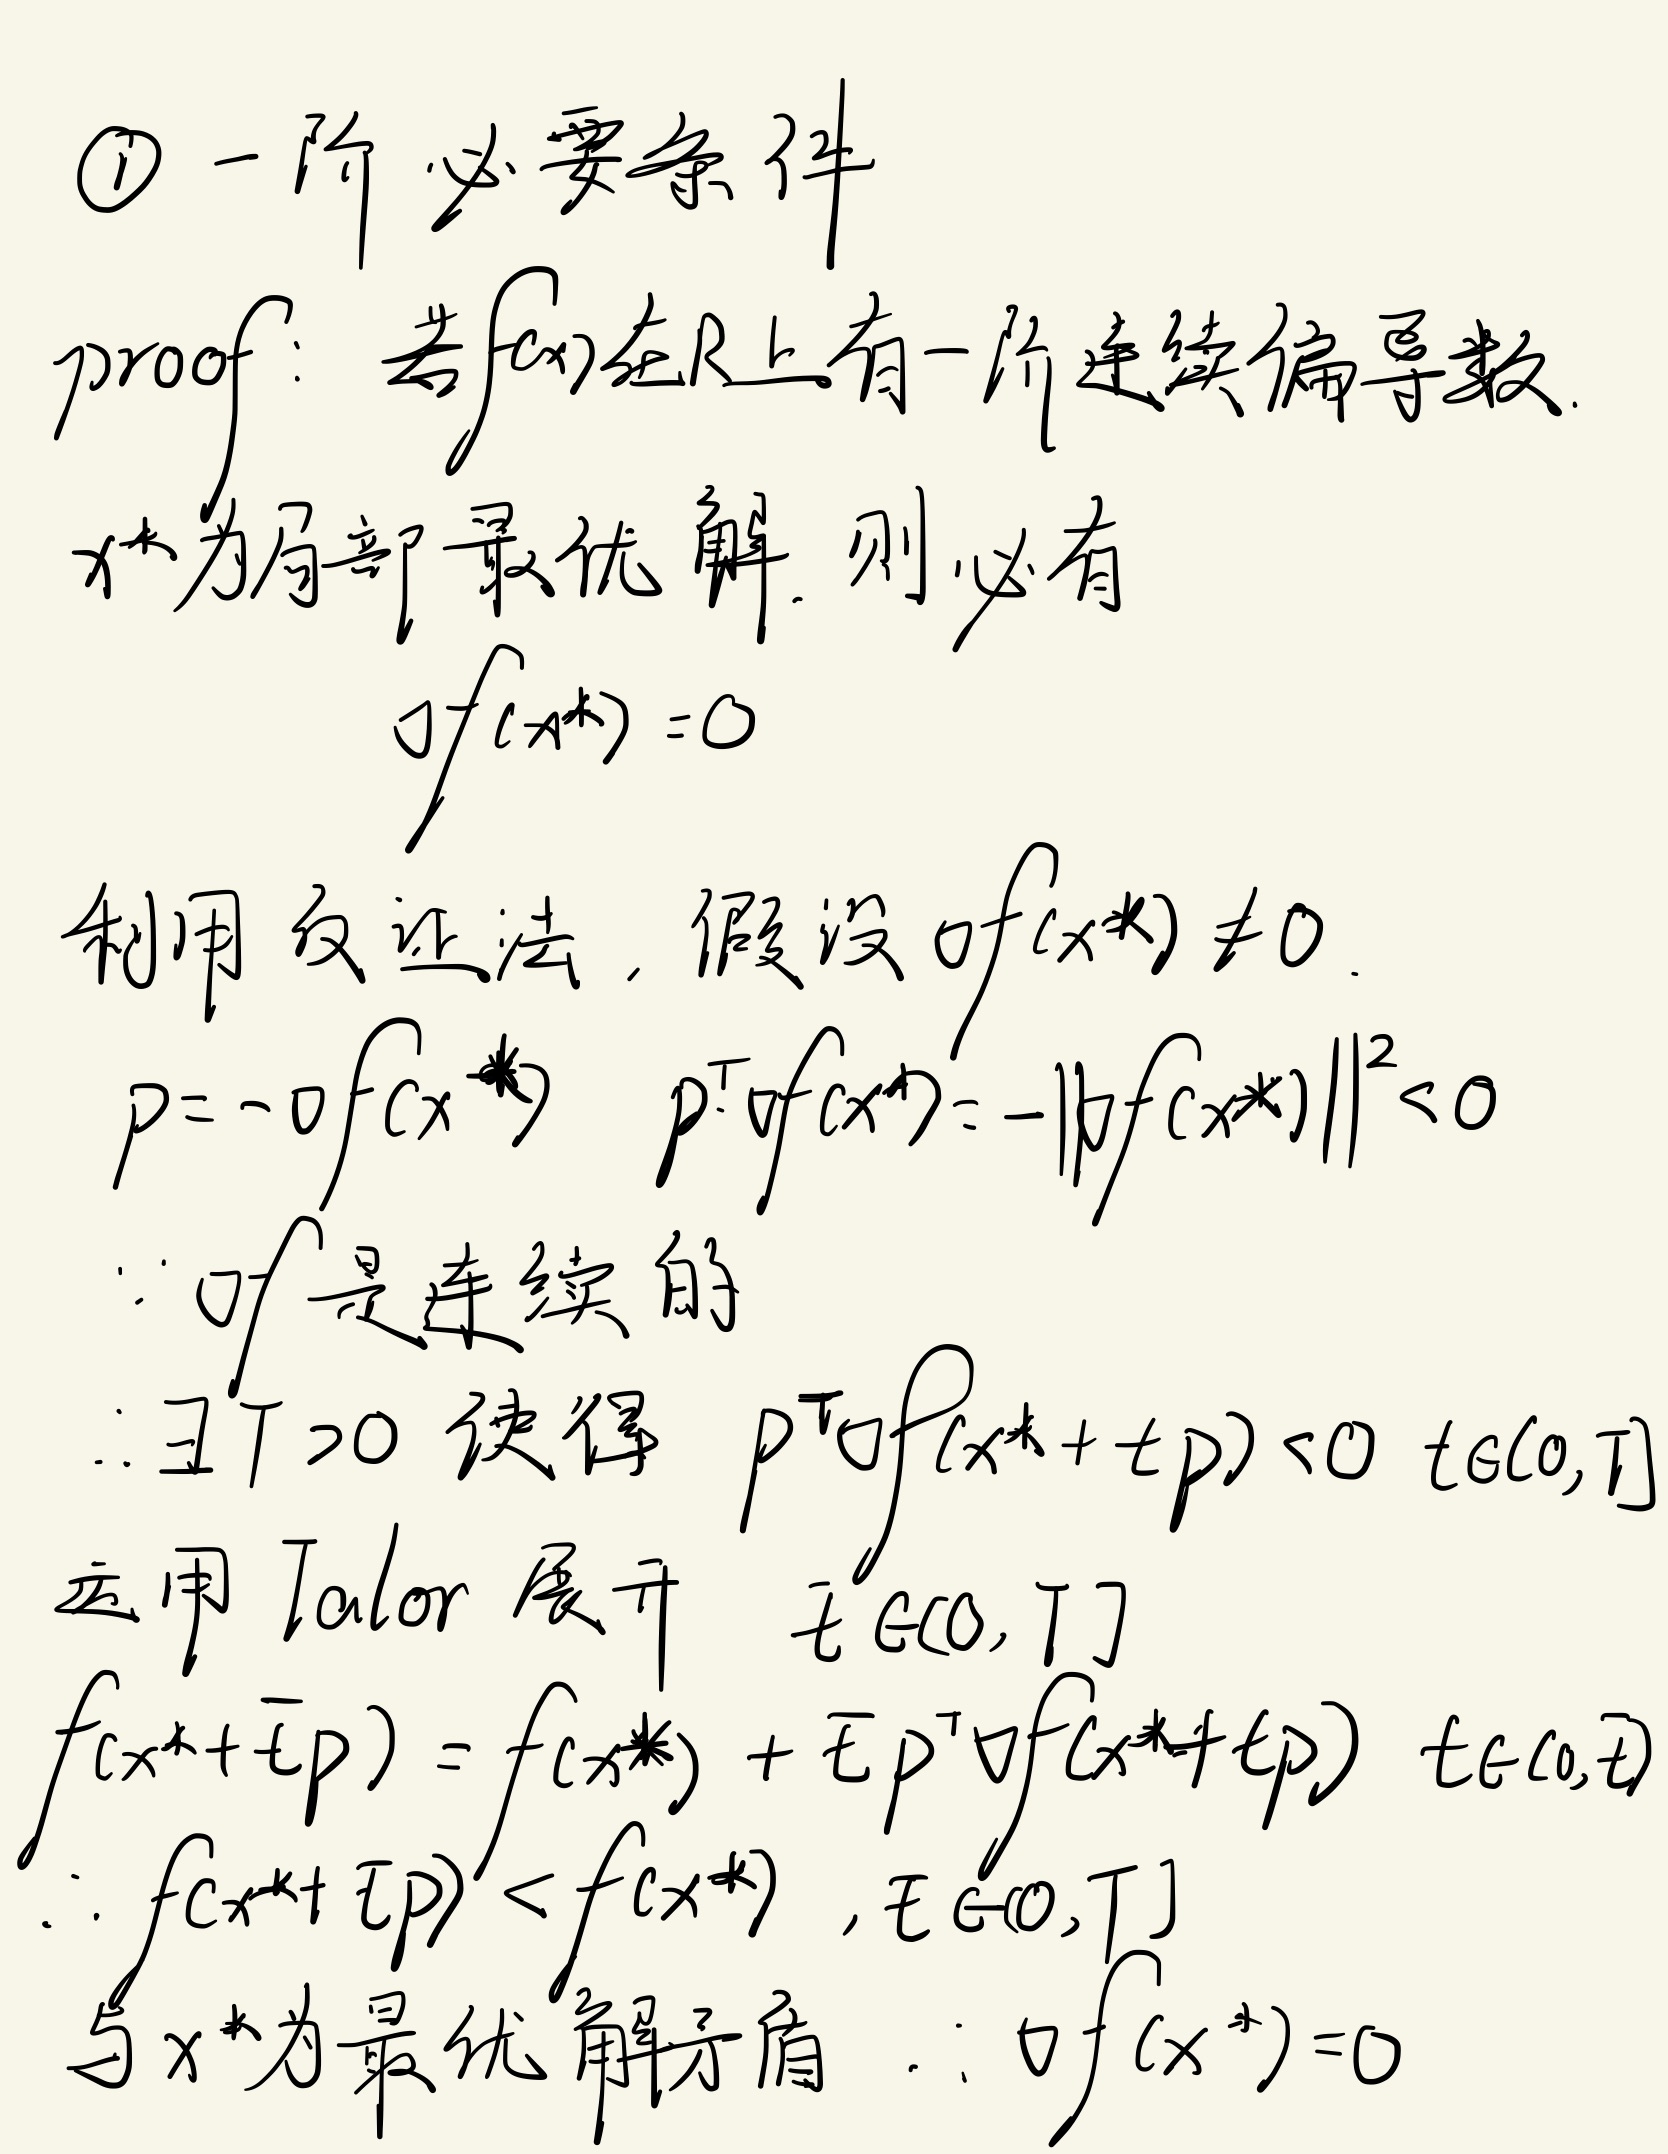 ① 一阶必要条件
proof: 若f(x)在R上有一阶连续偏导数.
x*为局部最优解. 则必有
∇f(x*) = 0
利用反证法, 假设 ∇f(x*) ≠ 0.
p = -∇f(x*) pᵀ∇f(x*) = -||∇f(x*)||² < 0
∵ ∇f是连续的
∴ ∃T>0 使得 pᵀ∇f(x*+tp)<0 t∈[0,T]
运用Talor展开 t̄∈(0,T]
f(x*+t̄p) = f(x*) + t̄pᵀ∇f(x*+tp) t∈(0,t̄)
∴ f(x*+t̄p) < f(x*), t̄∈(0,T]
与x*为最优解矛盾 ∴ ∇f(x*)=0